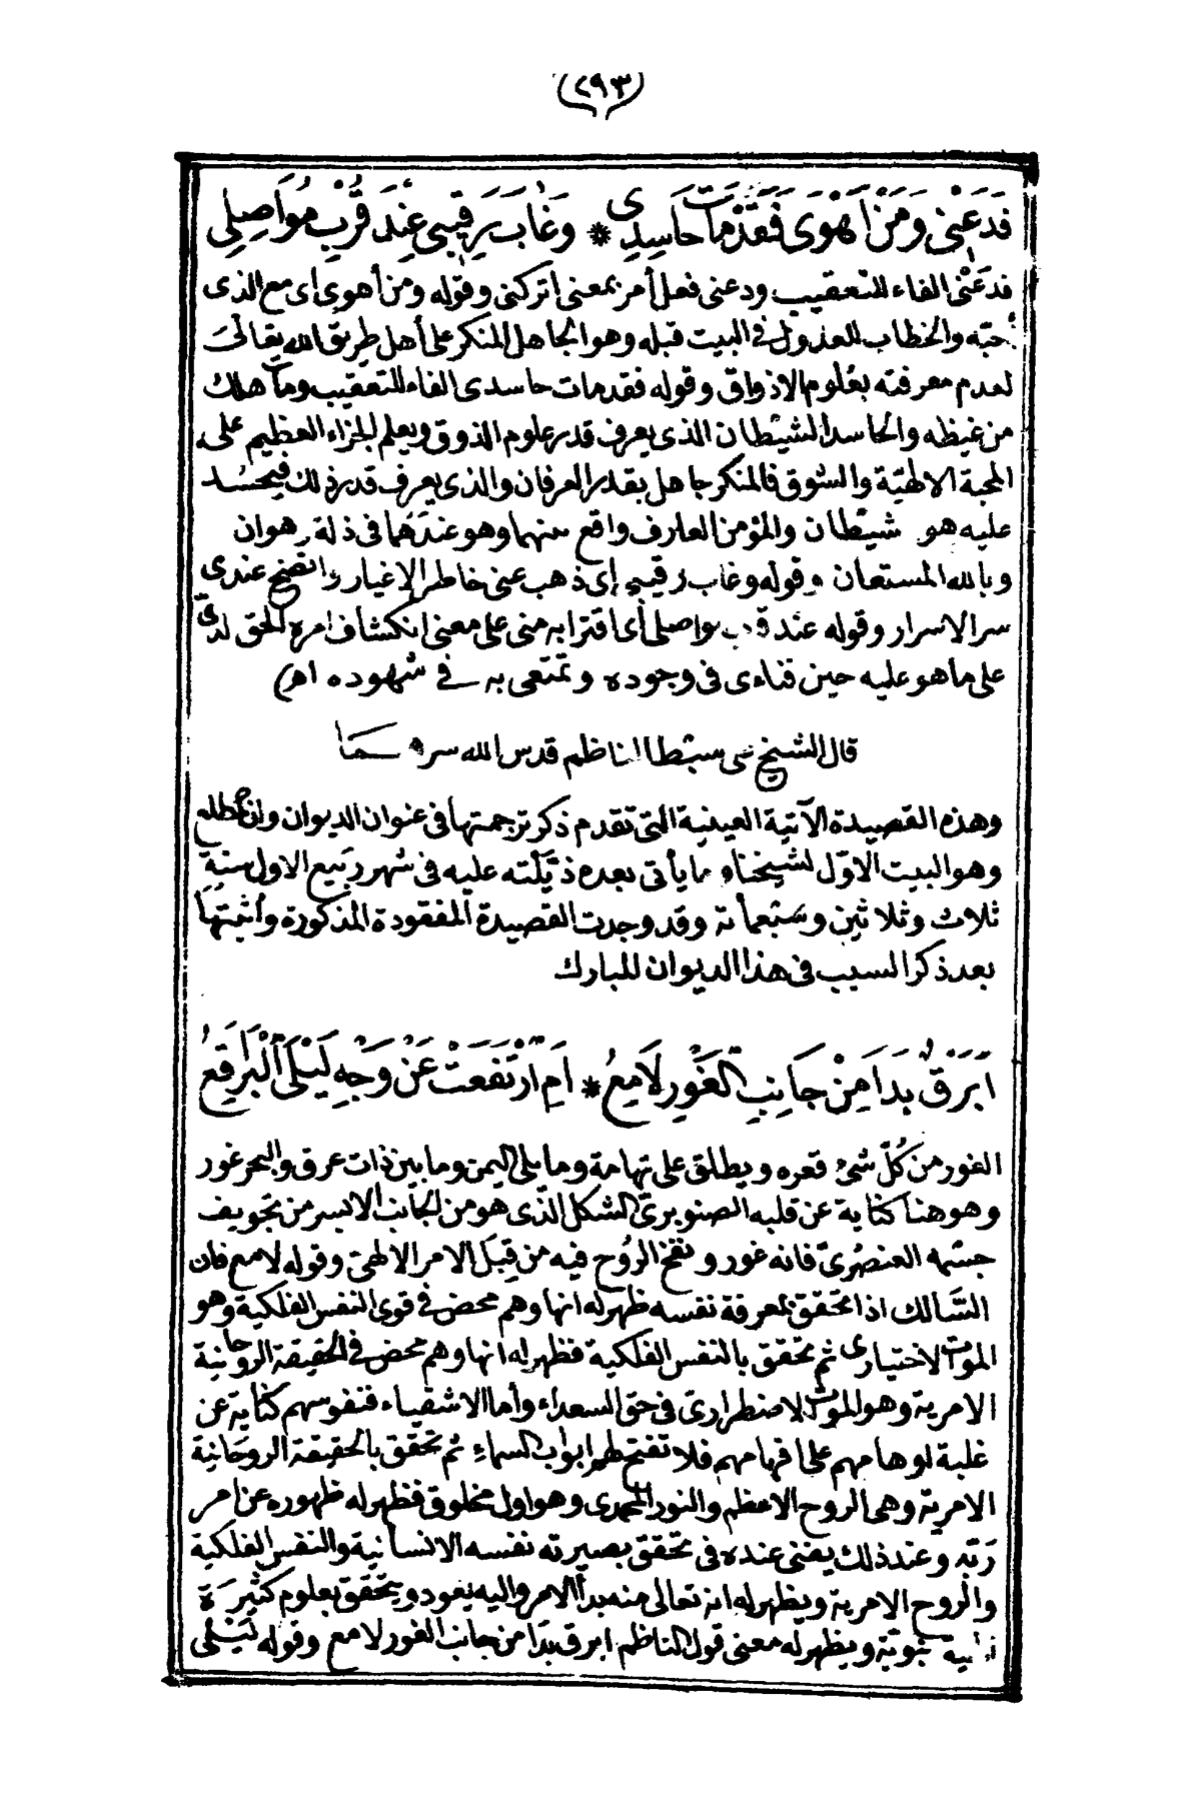 (٢٩٣)
فَدَعْنِي وَمَنْ أَهْوَى فَقَدْ مَاتَ حَاسِدِي * وَغَابَ رَقِيبِي عِنْدَ قُرْبِ مُوَاصِلِي
فدعني الفاء للتعقيب ودعنى فعل أمر بمعنى اتركنى وقوله ومن أهوى اى مع الذى
أحبه والخطاب للعذول في البيت قبله وهو الجاهل المنكر على أهل طريق الله تعالى
لعدم معرفته بعلوم الاذواق وقوله فقد مات حاسدى الفاء للتعقيب ومات هلك
من غيظه والحاسد الشيطان الذى يعرف قدر علوم الذوق ويعلم الجزاء العظيم على
المحبة الالهية والشوق فالمنكر جاهل بقدر العرفان والذى يعرف قدر ذلك فيحسد
عليه هو شيطان والمؤمن العارف واقع بينهما وهو عندهما فى ذلة وهوان
وبالله المستعان وقوله وغاب رقيبى اى ذهب عنى خاطر الاغيار واتضح عندى
سر الاسرار وقوله عند قرب مواصلى أى اقترابه منى على معنى انكشاف امره الحق لدىّ
على ما هو عليه حين فناءى فى وجوده وتمتعى به في شهوده اهـ)
قال الشيخ سبط الناظم قدس الله سره
وهذه القصيدة الآتية العينية التى تقدم ذكر ترجمتها فى عنوان الديوان وان مطلع
وهو البيت الاول لشيخنا وما يأتى بعده ذيّلته عليه فى شهر ربيع الاول سنة
ثلاث وثلاثين وسبعمائة وقد وجدت القصيدة المفقودة المذكورة وأثبتها
بعد ذكر السبب فى هذا الديوان المبارك
أَبَرْقٌ بَدَا مِنْ جَانِبِ الْغَوْرِ لَامِعُ * أَمِ ارْتَفَعَتْ عَنْ وَجْهِ لَيْلَى الْبَرَاقِعُ
الغور من كُلّ شئ قعره ويطلق على تهامة وما يلى اليمن وما بين ذات عرق والبحر غور
وهو هنا كناية عن قلبه الصنوبرىّ الشكل الذى هو من الجانب الايسر من تجويف
جسمه العنصرىّ فانه غور ونفخ الرُوح فيه من قِبَل الامر الالهىّ وقوله لامع فان
السَّالك اذا تحقق بمعرفة نفسه ظهر له انها وهم محض فى قوى النفس الفلكية وهو
الموت الاختيارى ثم تحقق بالنفس الفلكية فظهر له انها وهم محض فى الحقيقة الروحانية
الامرية وهو الموت الاضطرارى فى حق السعداء وأما الاشقياء فنفوسهم كناية عن
غلبة اوهامهم على افهامهم فلا تفتح لهم ابواب السماء ثم تحقق بالحقيقة الروحانية
الامرية وهى الروح الاعظم والنور المحمدى وهو اول مخلوق فظهر له ظهوره عن امر
رَبّه وعند ذلك يفنى عنده فى تحقق بصيرته نفسه الانسانية والنفس الفلكية
والروح الامرية ويظهر له انه تعالى منه بدأ الامر واليه يعود ويتحقق بعلوم كثيرة
نبوية ويظهر له معنى قول الناظم ابرق بدا من جانب الغور لامع وقوله لَيْلَى